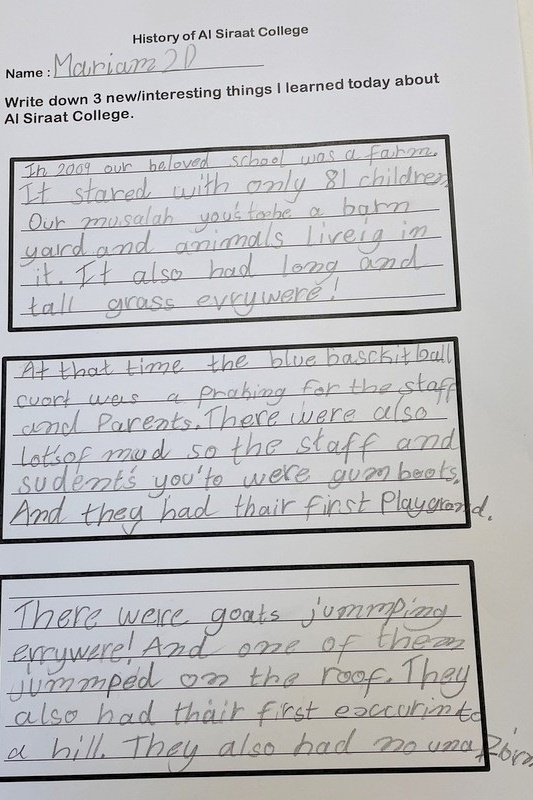 History of Al Siraat College
Name : Mariam 2D
Write down 3 new/interesting things I learned today about
Al Siraat College.
In 2009 our beloved school was a farm.
It stared with only 81 children
Our musalah you's to be a barn
yard and animals liveig in
it. It also had long and
tall grass evrywere!
At that time the blue basckit ball
cuort was a praking for the staff
and Parents. There were also
lot's of mud so the staff and
sudent's you'to were gumboots.
And they had thair first Playgrond.
There were goats jummping
evrywere! And one of them
jummped on the roof. They
also had thair first excurin to
a hill. They also had no una form